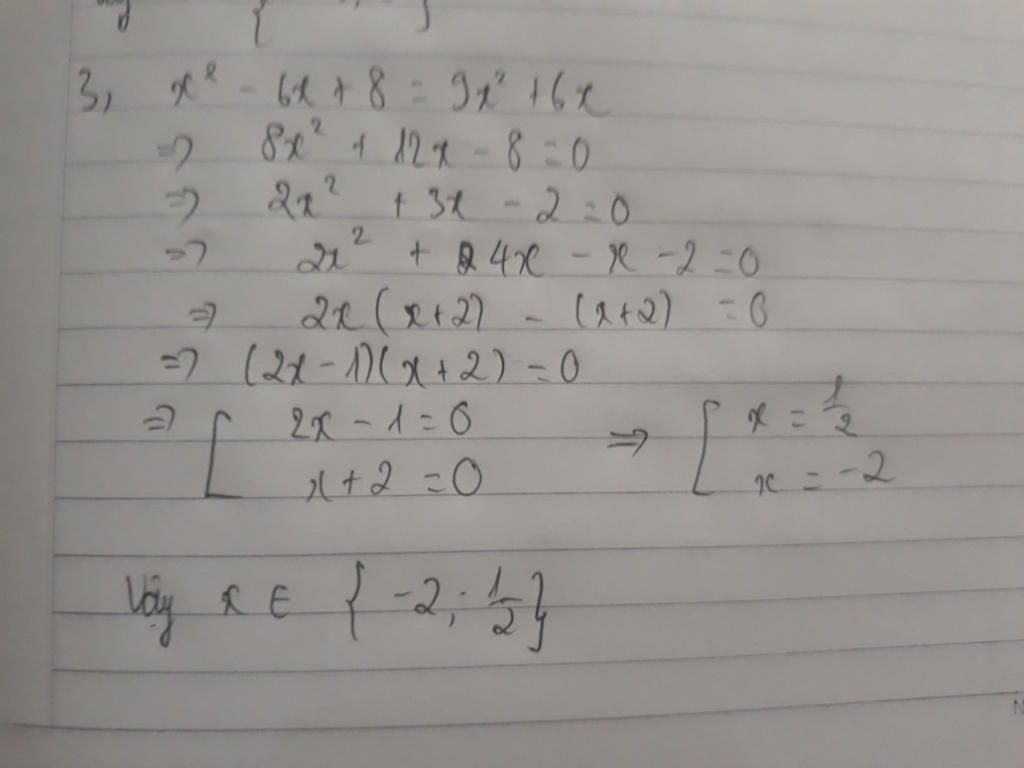 3, x² - 6x + 8 = 9x² + 6x
=> 8x² + 12x - 8 = 0
=> 2x² + 3x - 2 = 0
=> 2x² + 4x - x - 2 = 0
=> 2x(x+2) - (x+2) = 0
=> (2x-1)(x+2) = 0
=> [ 2x - 1 = 0 => [ x = 1/2
x + 2 = 0 x = -2
Vậy x ∈ { -2; 1/2 }